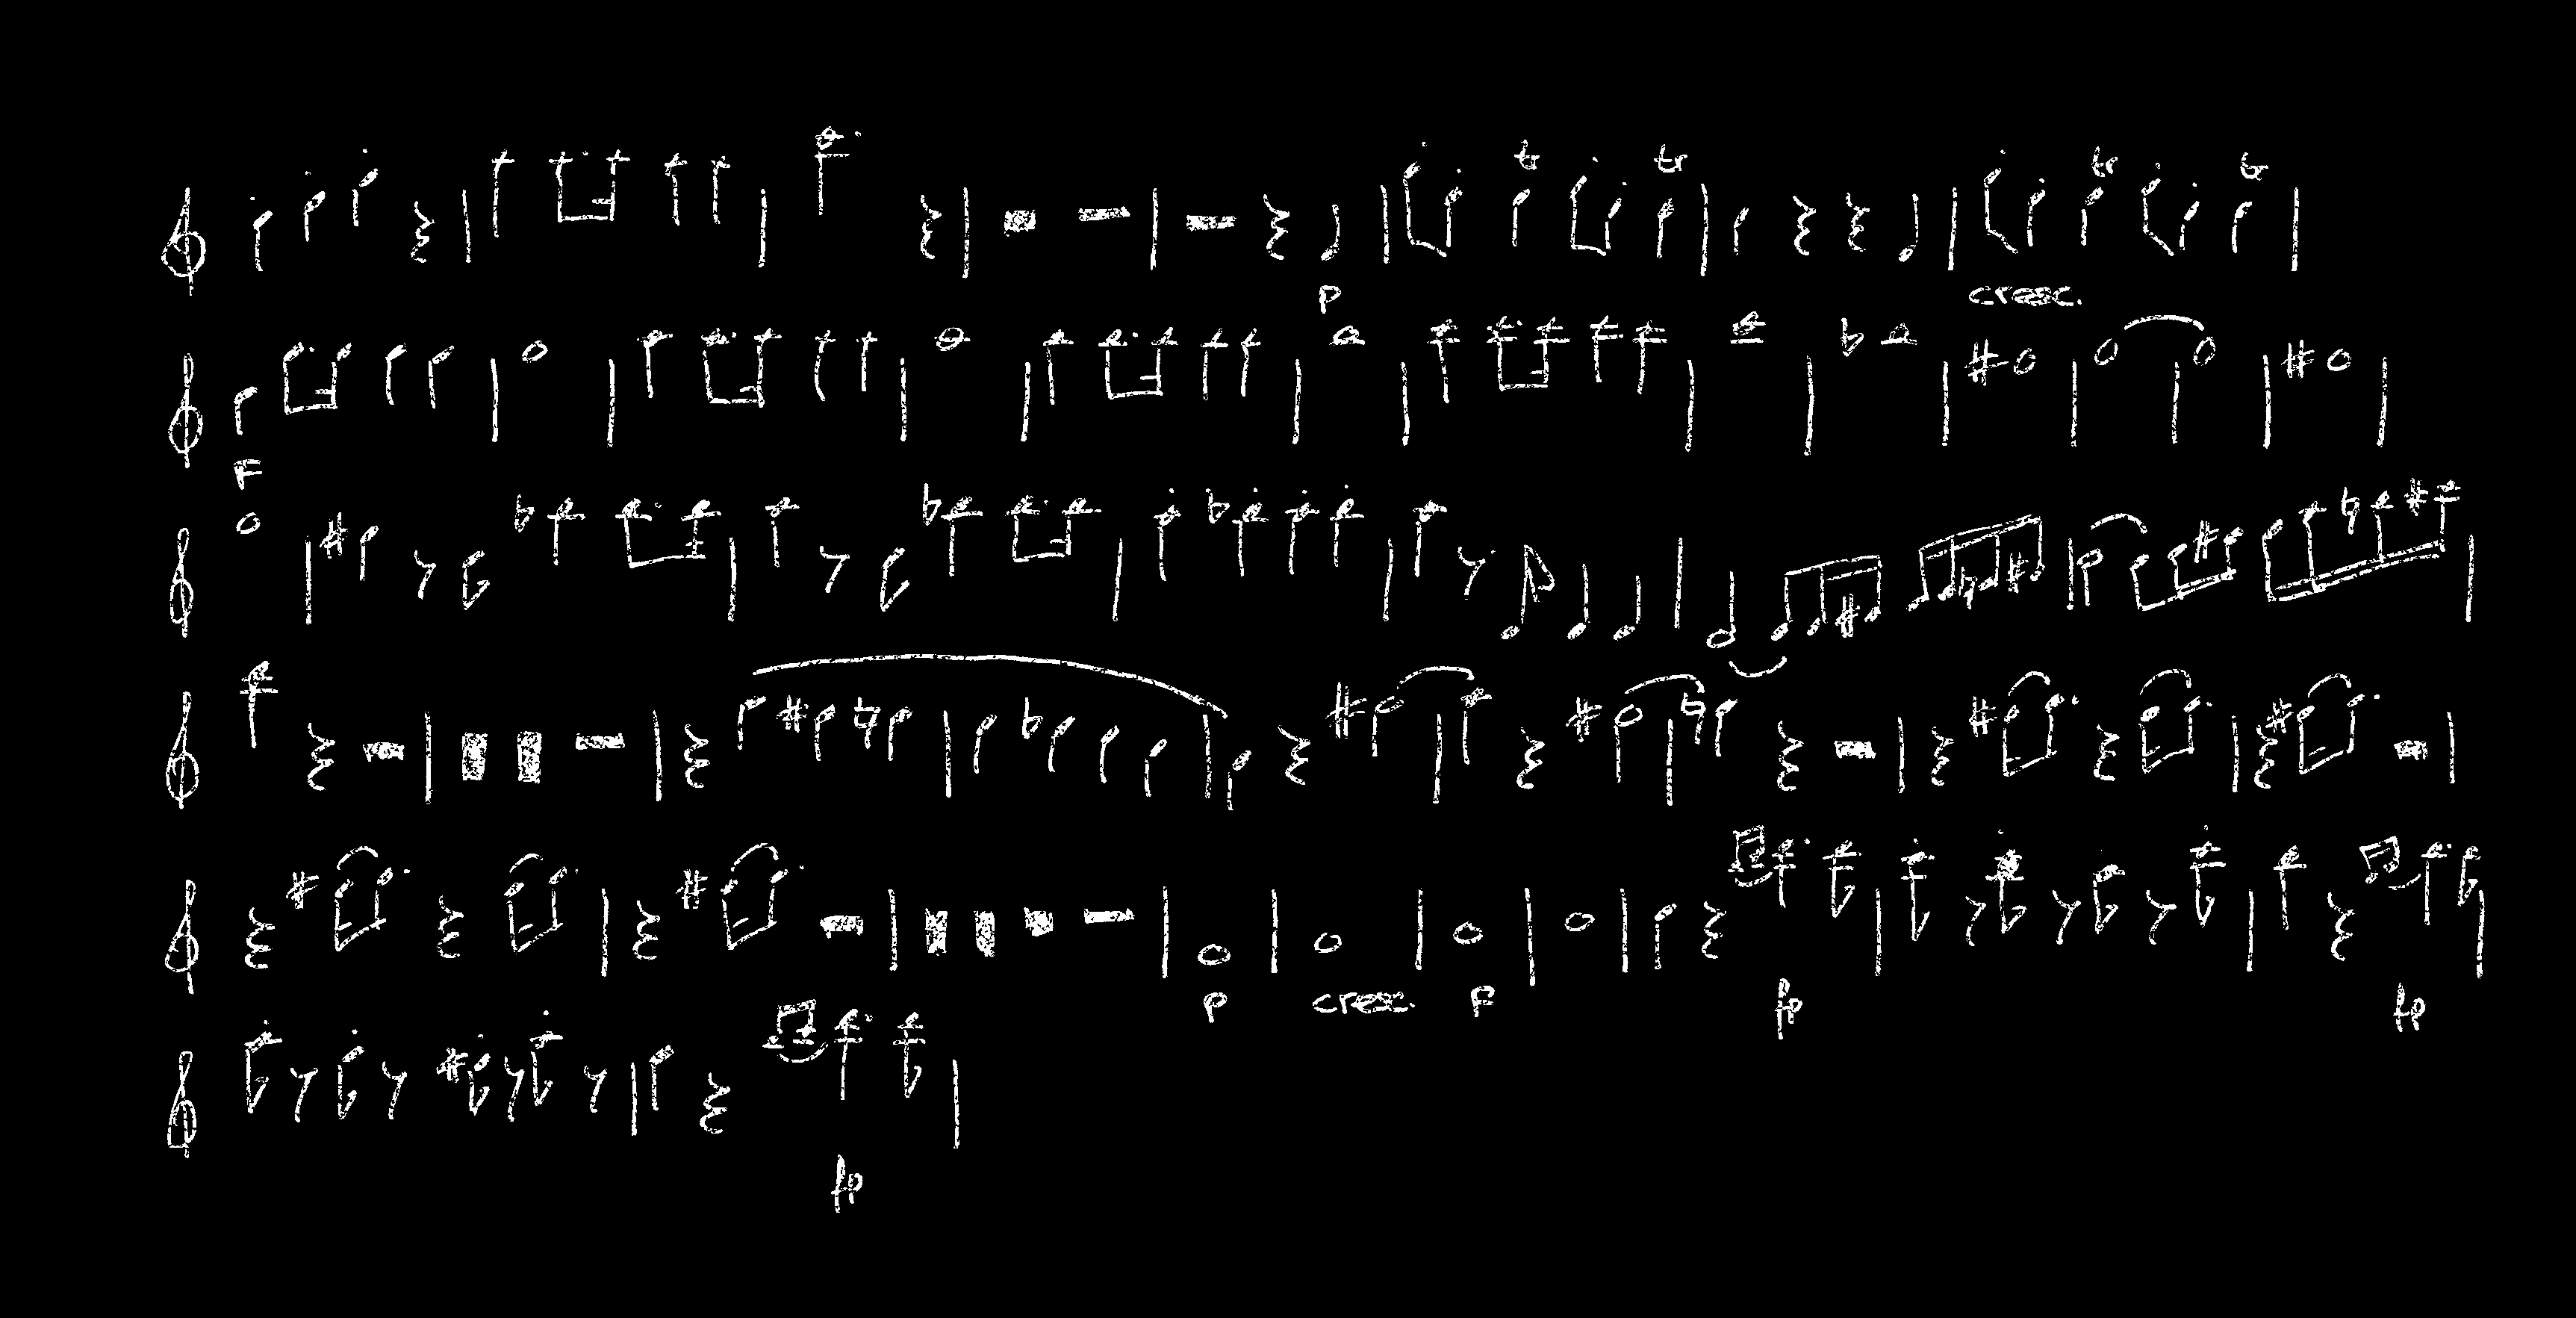 tr tr tr tr
p cresc.
F
p cresc. F fp fp
fp